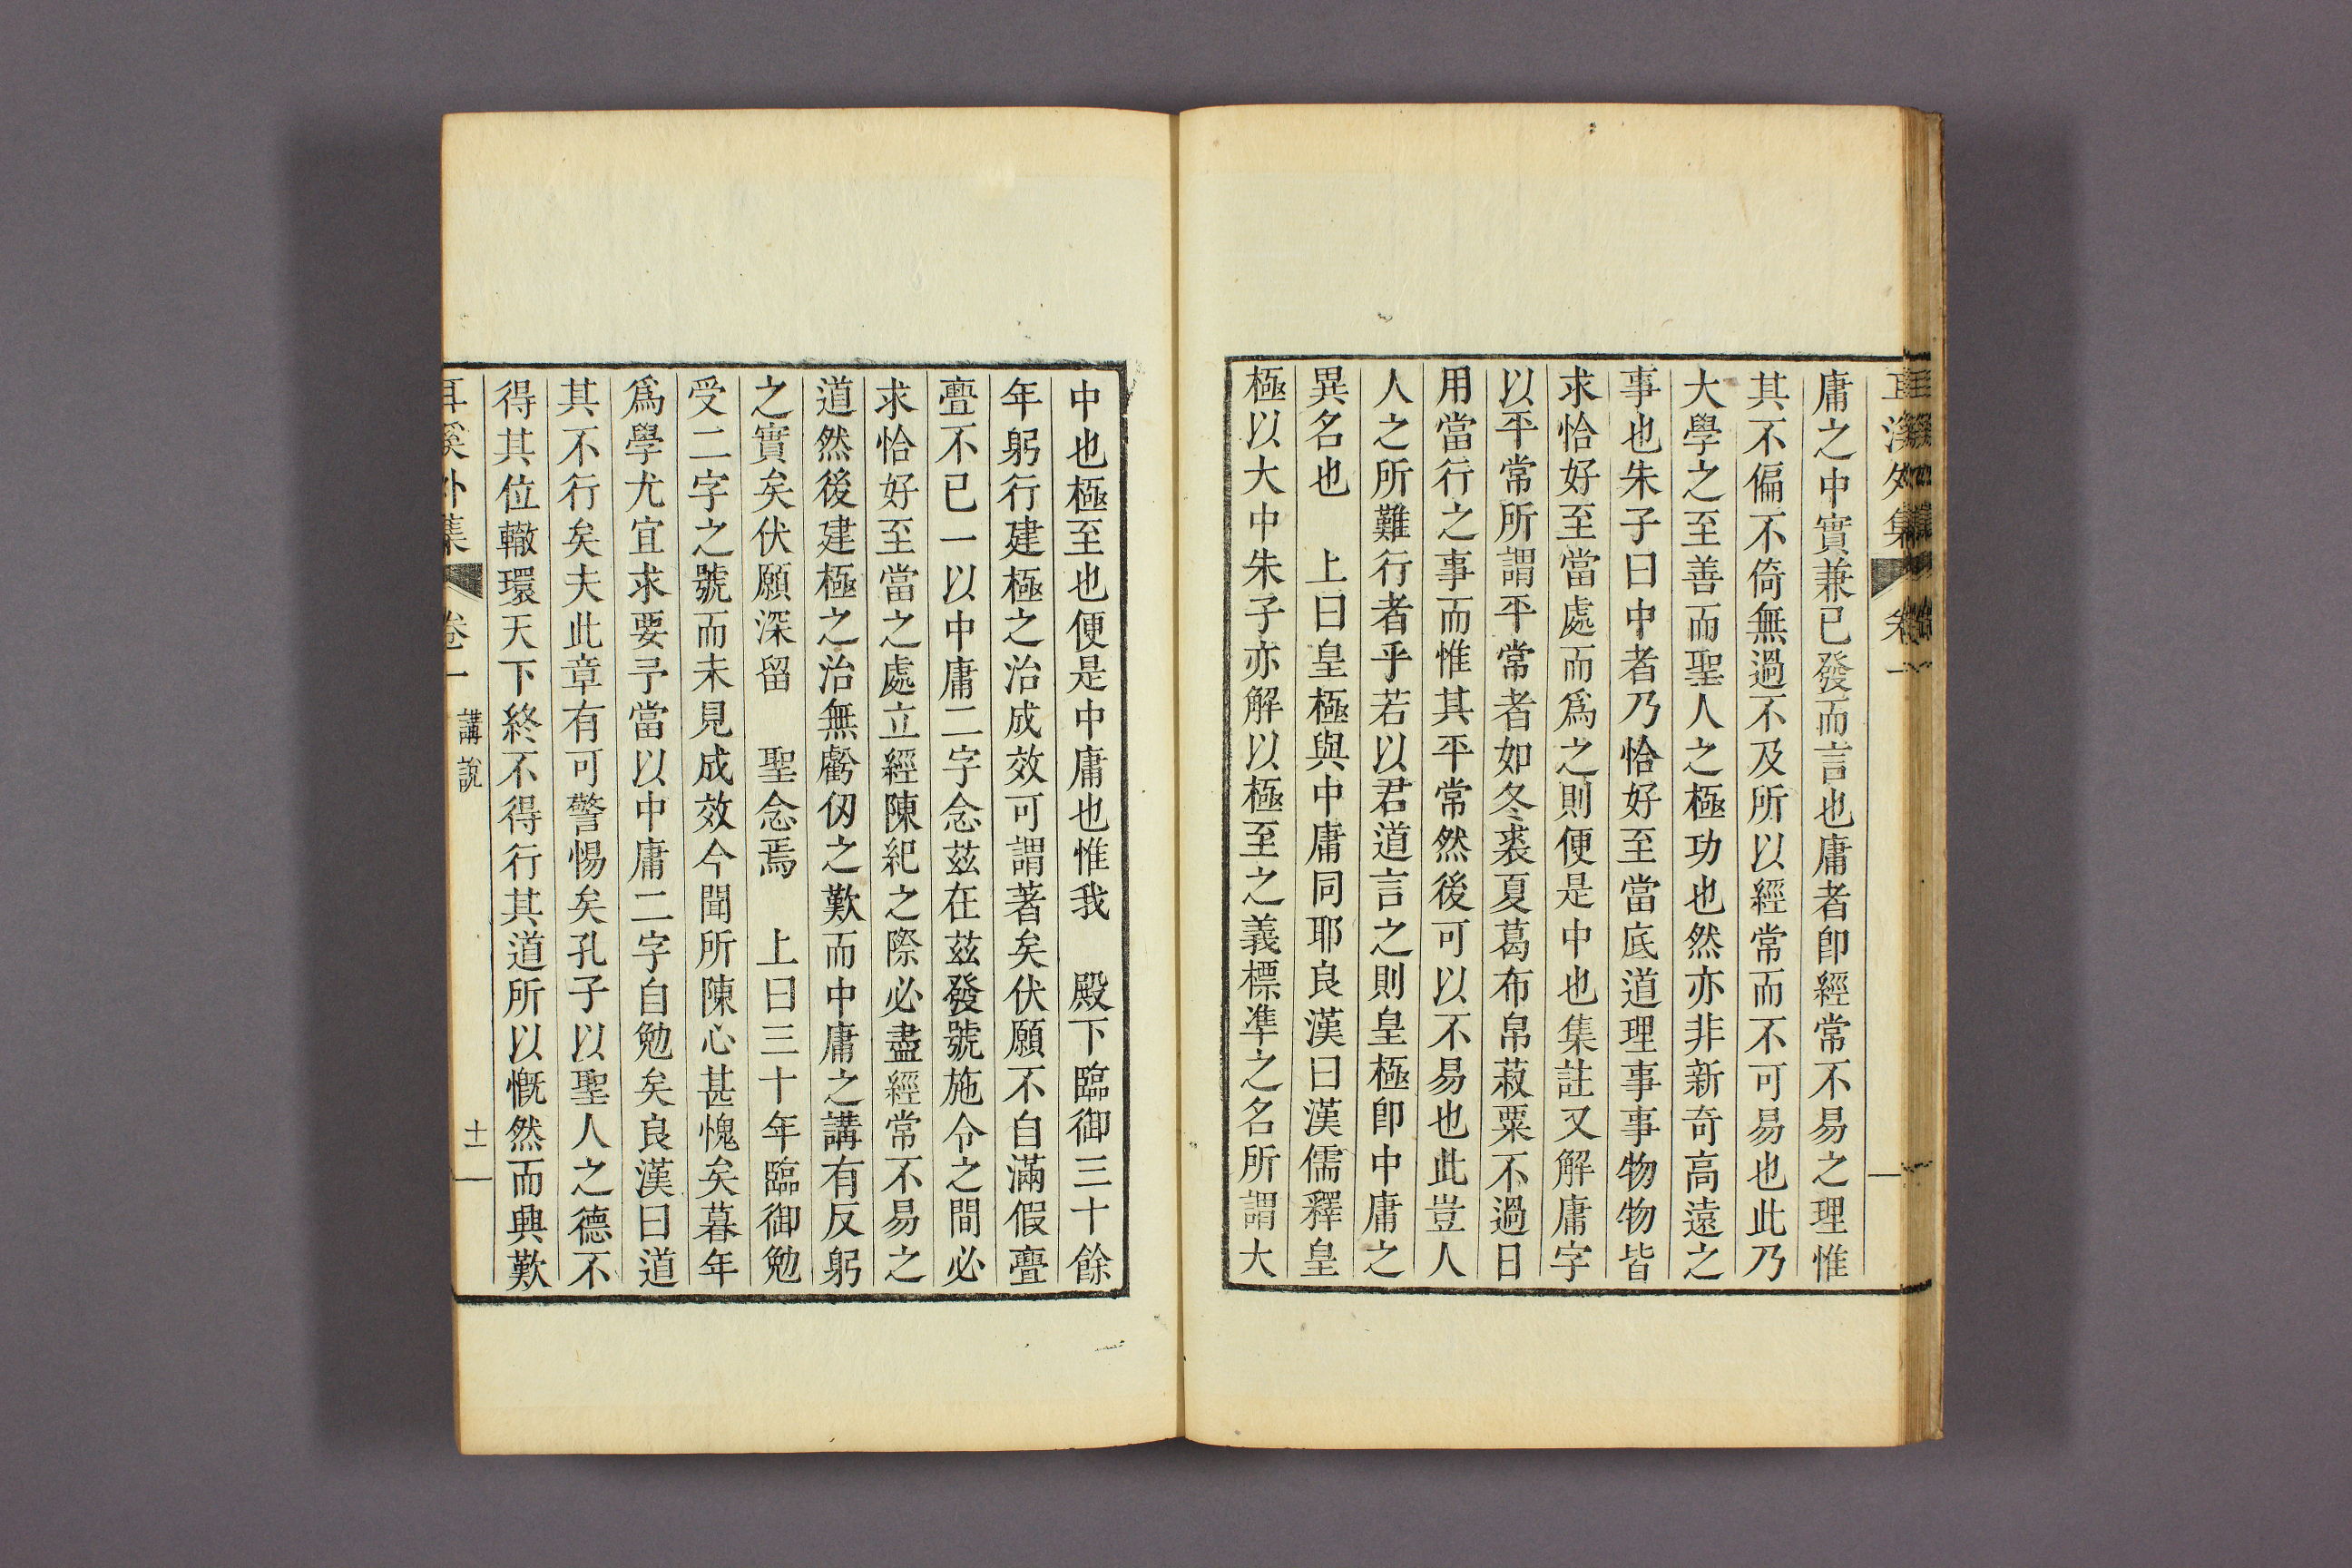 耳溪外集 卷一
庸之中實兼已發而言也庸者卽經常不易之理惟
其不偏不倚無過不及所以經常而不可易也此乃
大學之至善而聖人之極功也然亦非新奇高遠之
事也朱子曰中者乃恰好至當底道理事事物物皆
求恰好至當處而爲之則便是中也集註又解庸字
以平常所謂平常者如冬裘夏葛布帛菽粟不過日
用當行之事而惟其平常然後可以不易也此豈人
人之所難行者乎若以君道言之則皇極卽中庸之
異名也 上曰皇極與中庸同耶良漢曰漢儒釋皇
極以大中朱子亦解以極至之義標準之名所謂大
中也極至也便是中庸也惟我 殿下臨御三十餘
年躬行建極之治成效可謂著矣伏願不自滿假亹
亹不已一以中庸二字念茲在茲發號施令之間必
求恰好至當之處立經陳紀之際必盡經常不易之
道然後建極之治無虧仞之歎而中庸之講有反躬
之實矣伏願深留 聖念焉 上曰三十年臨御勉
受二字之號而未見成效今聞所陳心甚愧矣暮年
爲學尤宜求要予當以中庸二字自勉矣良漢曰道
其不行矣夫此章有可警惕矣孔子以聖人之德不
得其位轍環天下終不得行其道所以慨然而興歎
耳溪外集 卷一 講說 十一